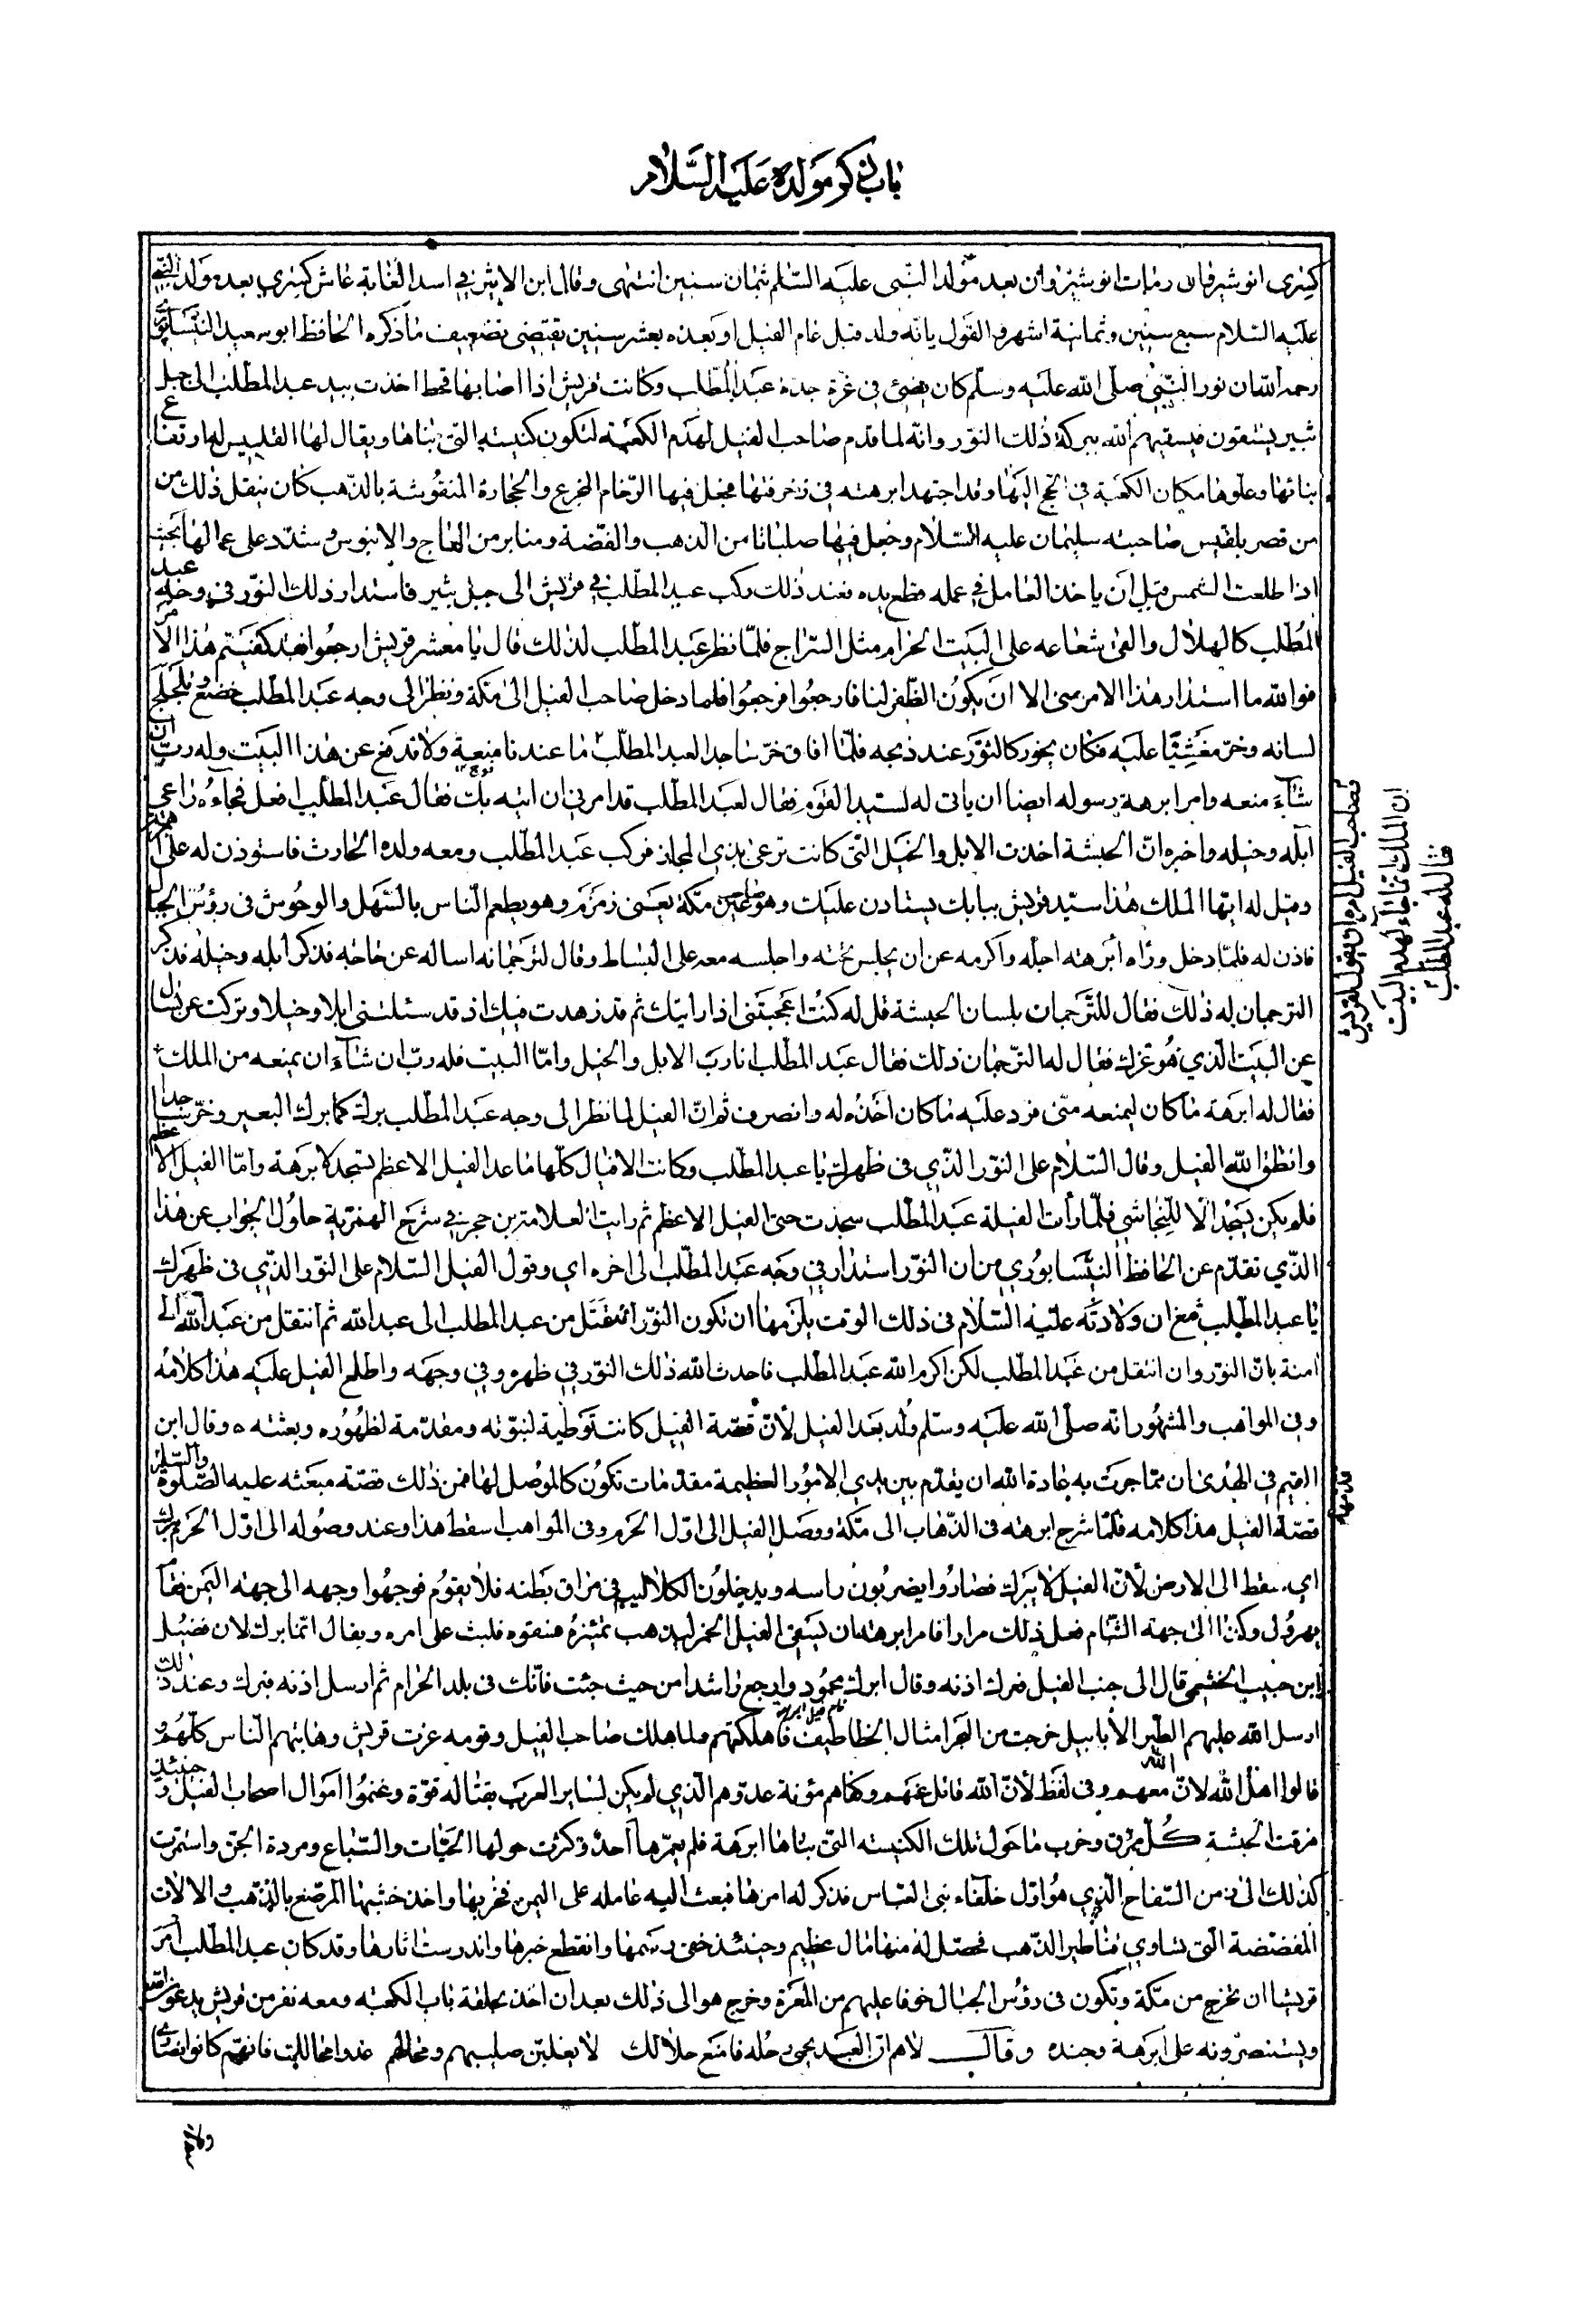 باب ذكر مولده عليه السلام
كسرى انوشيروان ومات انوشيروان بعد مولد النبى عليه السلم بثمان سنين انتهى وقال ابن الاثير في اسد الغابة عاش كسري بعد مولد النبي
عليه السلام سبع سنين وثمانية اشهر والقول بانه ولد قبل عام الفيل او بعده بعشر سنين يقتضى تضعيف ما ذكره الحافظ ابو سعيد النيسابوري
رحمه الله ان نور النبي صلى الله عليه وسلم كان يضئ في غرة جده عبد المطلب وكانت قريش اذا اصابها قحط اخذت بيد عبد المطلب الى جبل
ثبير يستسقون فيسقيهم الله ببركة ذلك النور وانه لما قدم صاحب الفيل لهدم الكعبة لتكون كنيسته التي بناها ويقال لها القليس لارتفاع
بنائها وعلوها مكان الكعبة في الحج اليها وقد اجتهد ابرهته في زخرفتها فجعل فيها الرخام المجزع والحجارة المنقوشة بالذهب كان ينقل ذلك من
من قصر بلقيس صاحبته سليمان عليه السلام وجعل فيها صلبانا من الذهب والفضة ومنابر من العاج والابنوس وشدد على عمالها بحيث
اذا طلعت الشمس قبل ان ياخذ العامل في عمله قطع يده فعند ذلك ركب عبد المطلب في قريش الى جبل ثبير فاستدار ذلك النور في وجه عبد
المطلب كالهلال والقى شعاعه على البيت الحرام مثل السراج فلما نظر عبد المطلب لذلك قال يا معشر قريش ارجعوا فقد كفيتم هذا الامر
فوالله ما استدار هذا الامر منى الا ان يكون الظفر لنا فارجعوا فرجعوا فلما دخل صاحب الفيل الى مكة ونظر الى وجه عبد المطلب خضع وتلجلج
لسانه وخر مغشيا عليه فكان يخور كالثور عند ذبحه فلما افاق خر ساجدا لعبد المطلب ما عندنا منعة ولا قدفع عن هذا البيت وله رب ان
شآء منعه وامر ابرهة رسوله ايضا ان ياتى له لسيد القوم فقال لعبد المطلب قد امرني ان اتيه بك فقال عبد المطلب افعل فجاءه راعي
ابله وخيله واخبره ان الحبشة اخذت الابل والخيل التى كانت ترعى بذي المجاز فركب عبد المطلب ومعه ولده الحارث فاستوذن له على ابرهة
وقيل له ايها الملك هذا سيد قريش ببابك يستاذن عليك وهو صاحب عين مكة يعنى زمزم وهو يطعم الناس بالسهل والوحوش في رؤس الجبال
فاذن له فلما دخل وراه ابرهته اجله واكرمه عن ان يجلس تحته واجلسه معه على البساط وقال لترجمانه اساله عن حاجته فذكر ابله وخيله فذكر
الترجمان له ذلك فقال للترجمان بلسان الحبشة قل له كنت اعجبتنى اذ رايتك ثم قد زهدت فيك اذ قد سئلتنى ابلا وخيلا وتركت عن تسال
عن البيت الذي هو عزك فقال له الترجمان ذلك فقال عبد المطلب انا رب الابل والخيل واما البيت فله رب ان شآء ان يمنعه من الملك
فقال له ابرهة ما كان ليمنعه منى فرد عليه ما كان اخذه له وانصرف ثم ان الفيل لما نظر الى وجه عبد المطلب برك كما برك البعير وخر ساجدا
وانطق الله الفيل وقال السلام على النور الذي في ظهرك يا عبد المطلب وكانت الافيال كلها ما عدا الفيل الاعظم تسجد لابرهة واما الفيل الاعظم
فلم يكن يسجد الا للنجاشي فلما رأت الفيلة عبد المطلب سجدت حتى الفيل الاعظم ثم رايت العلامة بن حجر في شرح الهمزية حاول الجواب عن هذا
الذي تقدم عن الحافظ النيسابوري من ان النور استدار في وجه عبد المطلب الى اخره اي وقول الفيل السلام على النور الذي في ظهرك
يا عبد المطلب مع ان ولادته عليه السلام في ذلك الوقت يلزمها ان تكون النور انتقل من عبد المطلب الى عبد الله ثم انتقل من عبد الله الى
امنة بان النور وان انتقل من عبد المطلب لكن اكرم الله عبد المطلب فاحدث الله ذلك النور في ظهره وفي وجهه واطلع الفيل عليه هذا كلامه
وفي المواهب والمشهور انه صلى الله عليه وسلم ولد بعد الفيل لأن قصة الفيل كانت توطية لنبوته ومقدمة لظهوره وبعثته ٥ وقال ابن
القيم في الهدى ان مما جرت به عادة الله ان يقدم بين يدي الامور العظيمة مقدمات تكون كالموصل لها فمن ذلك قصته مبعثه عليه الصلوة والسلم
قصة الفيل هذا كلامه فلما شرح ابرهته في الذهاب الى مكة ووصل الفيل الى اول الحرم وفي المواهب اسقط هذا وعند وصوله الى اول الحرم برك
اي سقط الى الارض لأن الفيل لا يبرك فصاروا يضربون راسه ويدخلون الكلاليب في مراق بطنه فلا يقوم فوجهوا وجهه الى جهته اليمن فقام
يهرول وكذا الى جهة الشام فعل ذلك مرارا فامر ابرهته ان يسقى الفيل الخمر ليذهب تمئيزه فسقوه فلبث على امره ويقال انما برك لان فضيل
ابن حبيب الخثعمي قال الى جنب الفيل فرك اذنه وقال ابرك محمود وارجع راشدا من حيث جئت فانك في بلد الحرام ثم ارسل اذنه فبرك وعند ذلك
نام فيل ابرهة
ارسل الله عليهم الطير الأبابيل خرجت من البحر امثال الخطاطيف فاهلكتهم ولما هلك صاحب الفيل وقومه عزت قريش وهابتهم الناس كلهم و
قالوا اهل الله لان الله معهم وفي لفظ لأن الله قاتل عنهم وكفاهم مؤنة عدوهم الذي لم يكن لساير العرب بقتاله قوة وغنموا اموال اصحاب الفيل وحينئذ
مزقت الحبشة كل ممزق وخرب ما حول تلك الكنيسته التى بناها ابرهة فلم يعمرها احد وكثرت حولها الحيات والسباع ومردة الجن واستمرت
كذلك الى زمن السفاح الذي هو اول خلفاء بنى العباس فذكر له امرها فبعث اليه عامله على اليمن فخربها واخذ خشبها المرصع بالذهب والالات
المفضضة التى تساوي قناطير الذهب فحصل له منها مال عظيم وحينئذ خفى رسمها وانقطع خبرها واندرست اثارها وقد كان عبد المطلب امر
قريشا ان تخرج من مكة وتكون في رؤس الجبال خوفا عليهم من المعرة وخرج هو الى ذلك بعد ان اخذ بحلقة باب الكعبته ومعه نفر من قريش يدعون الله
ويستنصرونه على ابرهة وجنده وقال لاهم ان العبد يحمى رحله فامنع حلالك لا يغلبن صليبهم ومحالهم غدوا محالك فانهم كانوا نصارى
فصاحب الفيل امره ان يقول لقريش
ان الملك انما جاء لهدم البيت
فقال له عبد المطلب
ولام